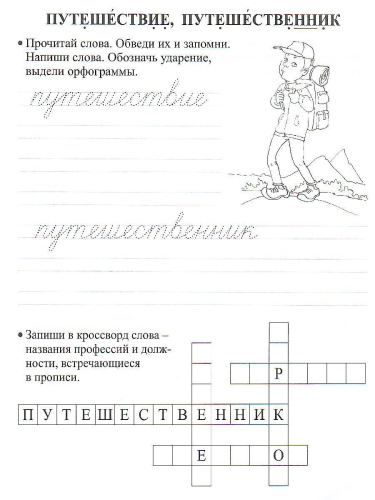 ПУТЕШЕ́СТВИЕ, ПУТЕШЕ́СТВЕННИК
• Прочитай слова. Обведи их и запомни.
Напиши слова. Обозначь ударение,
выдели орфограммы.
путешествие
путешественник
• Запиши в кроссворд слова –
названия профессий и долж-
ности, встречающиеся
в прописи.
Р
ПУТЕШЕСТВЕННИК
Е О